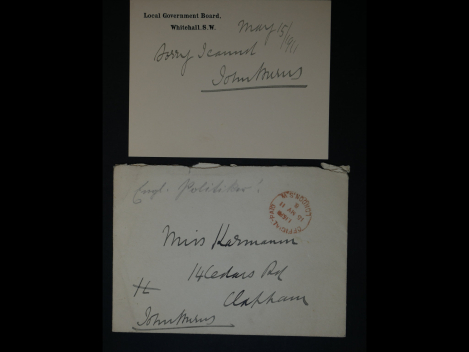 Local Government Board,
Whitehall. S.W.
May 15/1911
Sorry I cannot
John Burns
Engl. Politiker!
Miss Karmann
14 Cedars Rd
Clapham
John Burns